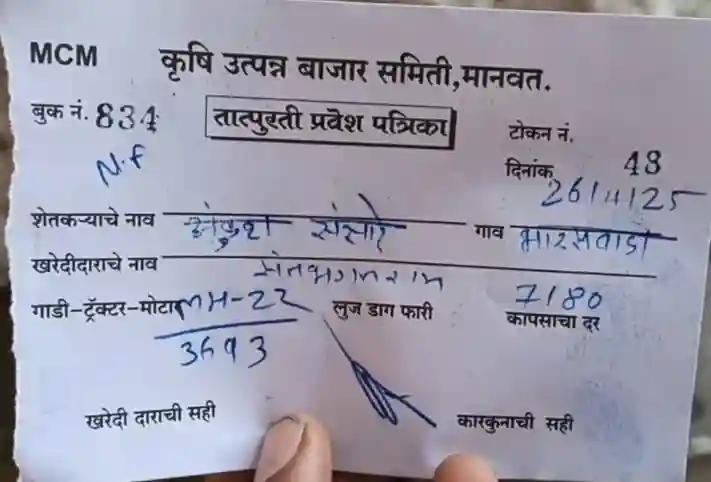 MCM कृषि उत्पन्न बाजार समिती,मानवत.
बुक नं. 834 तात्पुरती प्रवेश पत्रिका टोकन नं. 48
N.F दिनांक 26/11/25
शेतकऱ्याचे नाव अंकुश संसारे गाव भारसवाडा
खरेदीदाराचे नाव
गाडी-ट्रॅक्टर-मोटार MH-22 लुज डाग फारी 7180
3693 कापसाचा दर
खरेदी दाराची सही कारकुनाची सही